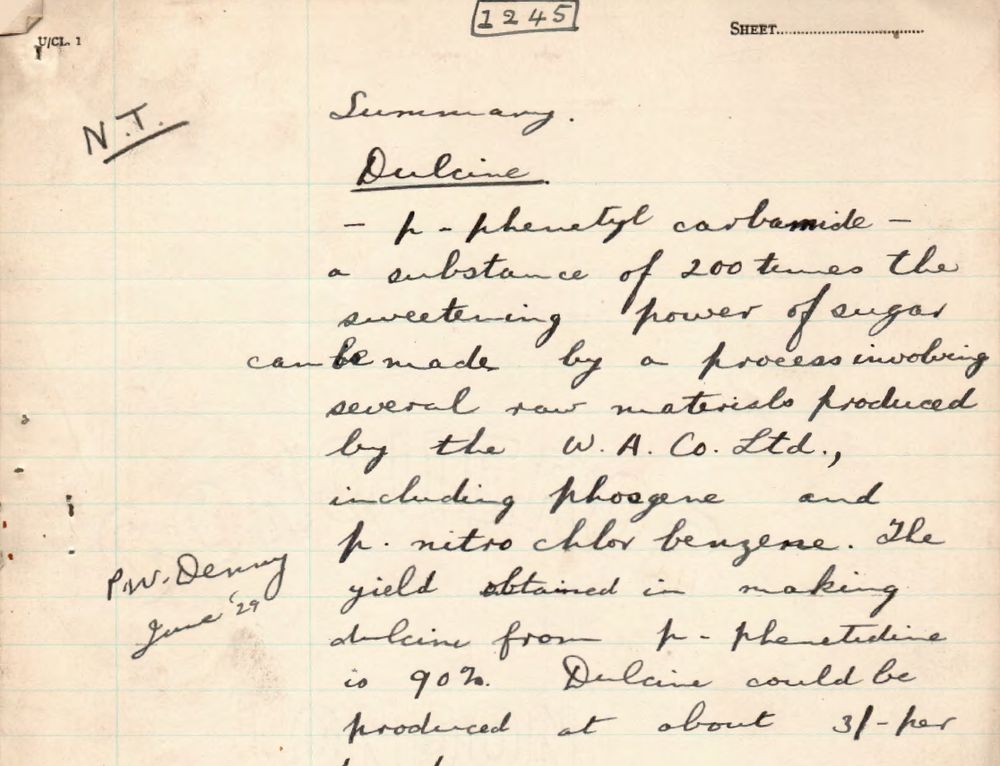 1245
U/CL. 1
SHEET
N.T.
Summary.
Dulcine
- p - phenetyl carbamide -
a substance of 200 times the
sweetening power of sugar
can be made by a process involving
several raw materials produced
by the W. A. Co. Ltd.,
including phosgene and
p. nitro chlor benzene. The
yield obtained in making
dulcine from p - phenetidine
is 90%. Dulcine could be
produced at about 3/- per
P.W. Denny
June '29